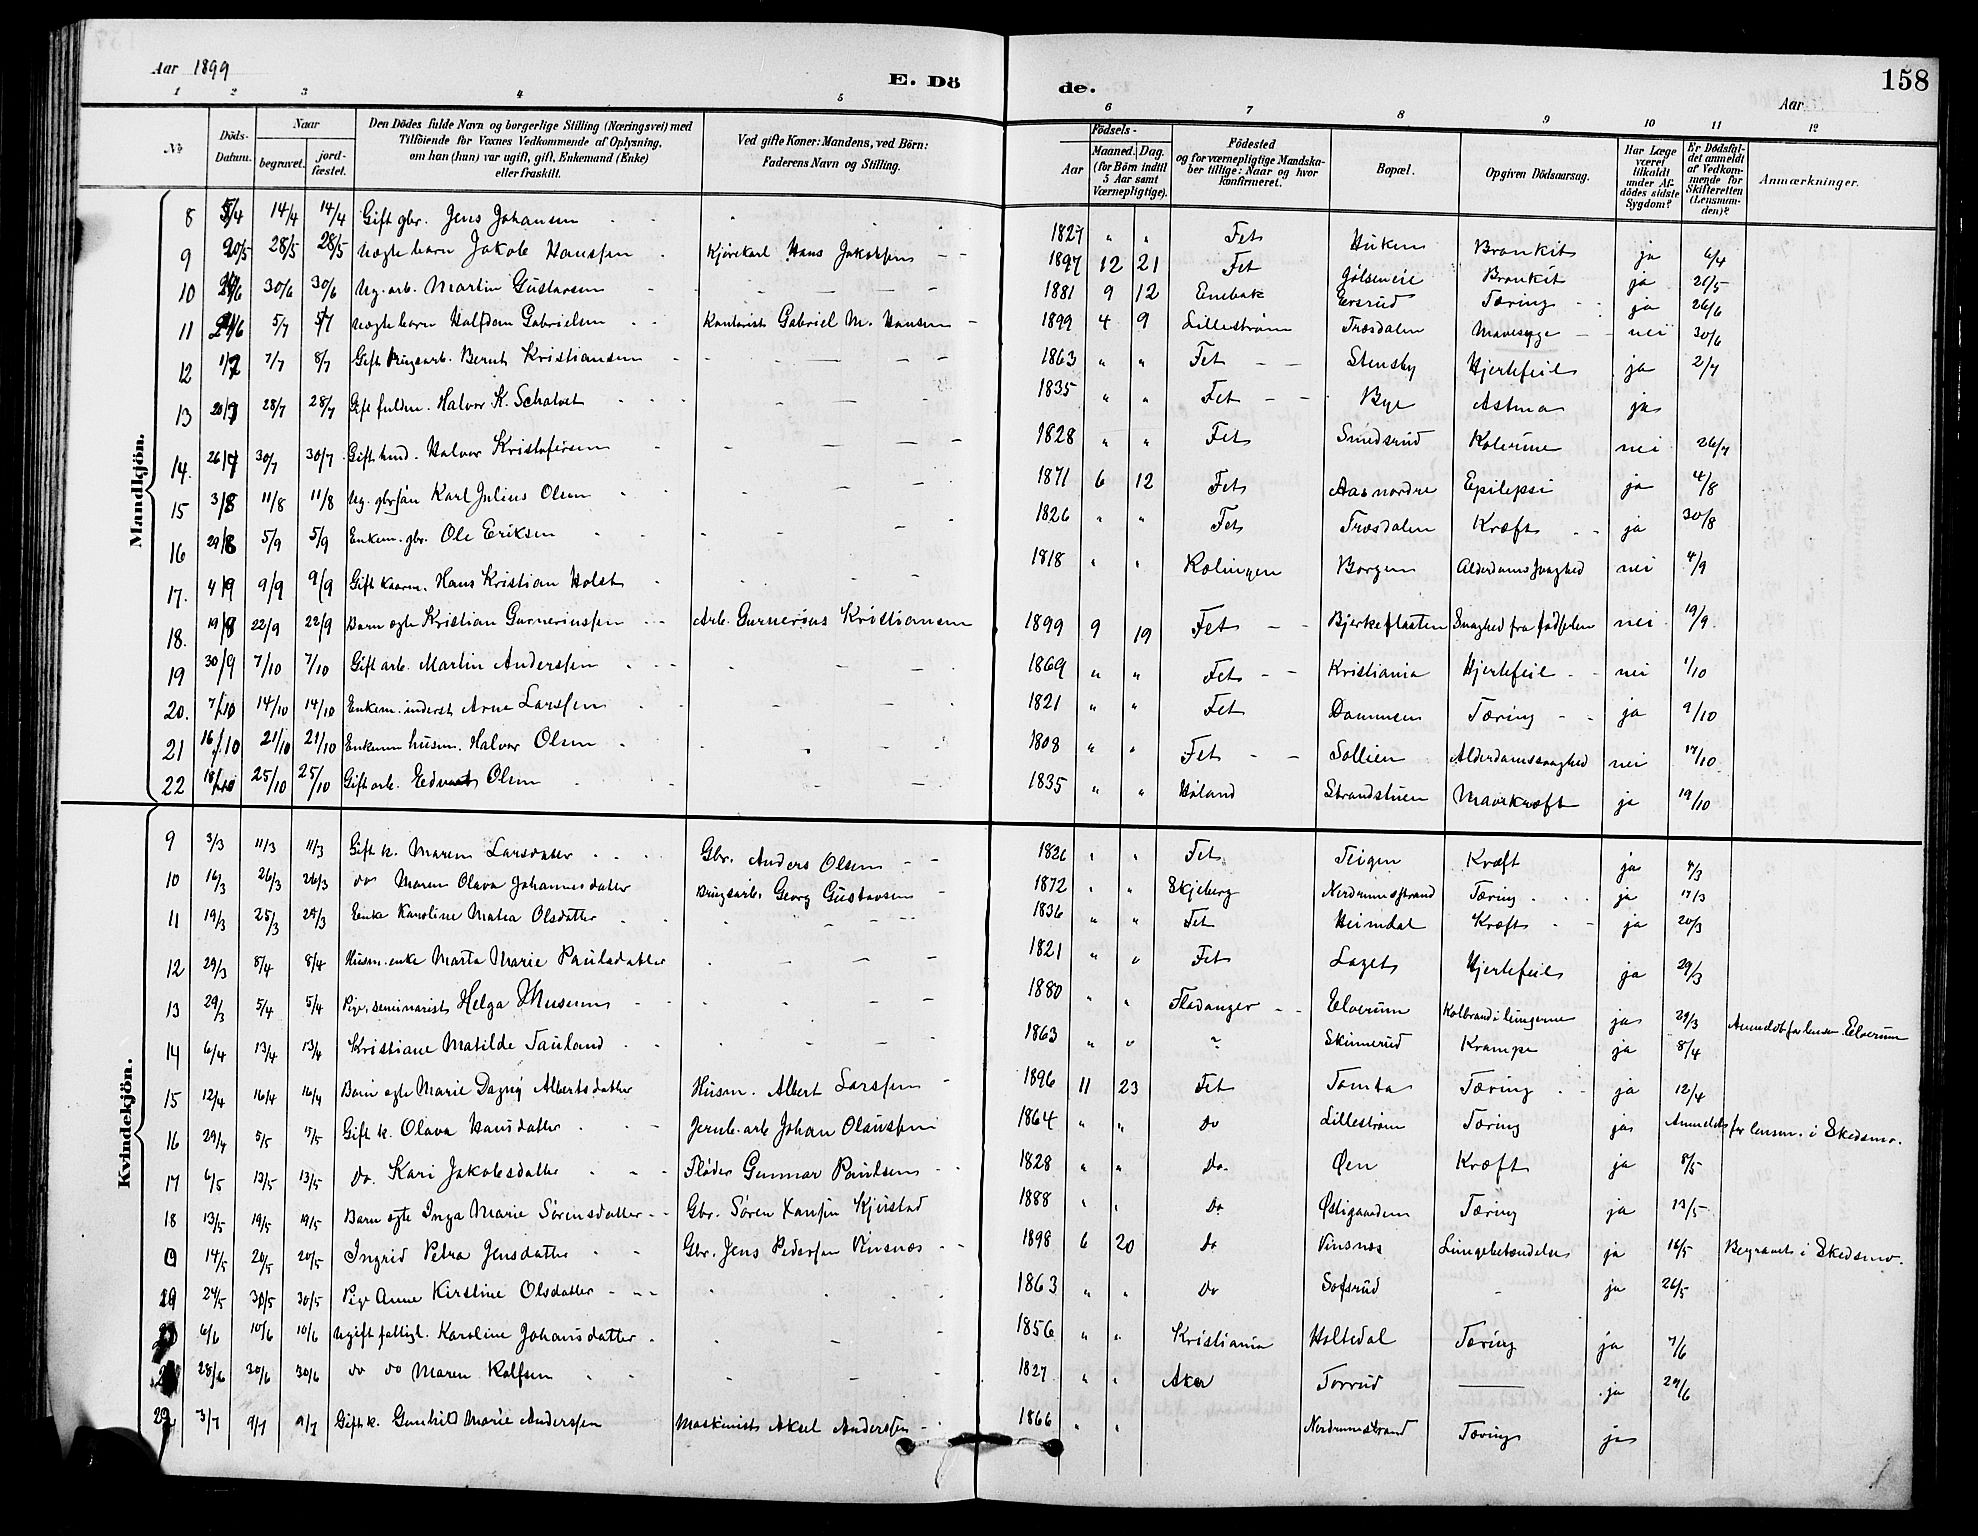 Aar 1899
E. Dö
de.
158
Aar
1 2 3 4 5 6 7 8 9 10 11 12
No
Döds-Datum.
Naar
begravet.
jord-fæstet.
Den Dödes fulde Navn og borgerlige Stilling (Næringsvei) med Tilföiende for Voxnes Vedkommende af Oplysning, om han (hun) var ugift, gift, Enkemand (Enke) eller fraskilt.
Ved gifte Koner: Mandens, ved Börn: Faderens Navn og Stilling.
Födsels-
Aar
Maaned. Dag.
(for Börn indtil 5 Aar samt Værnepligtige).
Födested og for værnepligtige Mandskaber tillige: Naar og hvor konfirmeret.
Bopæl.
Opgiven Dödsaarsag.
Har Læge været tilkaldt under Afdödes sidste Sygdom?
Er Dödsfaldet anmeldt af Vedkommende for Skifteretten (Lensmanden)?
Anmærkninger.
Mandkjön.
8 5/4 14/4 14/4 Gift gbr. Jens Johansen 1827 " " Fet Huken Bronkit ja 6/4
9 20/5 28/5 28/5 Uegte barn Jakob Hanssen Kjørekarl Hans Jakobsen 1897 12 21 Fet Gølseneie Bronkit ja 21/5
10 30/6 30/6 Ug. arb. Martin Gustavsen 1881 9 12 Enebak Ersrud Tæring ja 26/6
11 5/7 5/7 Uegte barn Halfdan Gabrielsen Kontorist Gabriel M. Hansen 1899 4 9 Lillestrøm Træsdalen Mavesyge nei 30/6
12 1/7 7/7 8/7 Gift Brugsarb. Bernt Kristiansen 1863 " " Fet Stensby Hjertefeil ja 2/7
13 20/7 28/7 28/7 Gift Halvor K. Schalvet 1835 " " Fet Bye Astma ja
14. 26/7 30/7 30/7 Gift Halvor Kristofersen 1828 " " Fet Smedsrud Kolerine nei 26/7
15 3/8 11/8 11/8 Ug. gbrsøn Karl Julius Olsen 1871 6 12 Fet Aas nordre Epilepsi ja 4/8
16 29/8 5/9 5/9 Enkem. gbr. Ole Eriksen 1826 " " Fet Træsdalen Kræft ja 30/8
17. 4/9 9/9 9/9 Gift Hans Kristian Holst 1818 " " Rælingen Borgen Alderdomssvaghed nei 4/9
18. 19/8 22/9 22/9 Barn egte Kristian Gunneriussen Arb. Gunnerius Kristiansen 1899 9 19 Fet Bjerkeflaaten Svaghed fra fødselen nei 19/9
19 30/9 7/10 7/10 Gift arb. Martin Anderssen 1869 " " Fet Kristiania Hjertefeil nei 1/10
20. 7/10 14/10 14/10 Enkem. inderst Arne Larssen 1821 " " Fet Dammen Tæring ja 9/10
21 16/10 21/10 21/10 Enkem husm. Halvor Olsen 1808 " " Fet Sollien Alderdomssvaghed nei 17/10
22 18/10 25/10 25/10 Gift arb. Edvart Olsen 1835 " " Høland Strandstuen Mavekræft ja 19/10
Kvindekjön.
9 3/3 11/3 11/3 Gift k. Maren Larsdatter Gbr. Anders Olsen 1826 " " Fet Teigen Kræft ja 4/3
10 16/3 26/3 26/3 do Maren Olava Johannesdatter Brugsarb. Georg Gustavsen 1872 " " Skjeberg Nerdrumsstrand Tæring ja 17/3
11 19/3 25/3 25/3 Enke Karoline Matea Olsdatter 1836 " " Fet Heimdal Kræft ja 20/3
12 29/3 8/4 8/4 Husm. enke Marta Marie Paulsdatter 1821 " " Fet Hjertefeil ja 29/3
13 29/3 5/4 5/4 Pige, seminarist Helga Museum 1880 " " Fladanger Elverum Kolbrand i lungerne ja 29/3 Anmeldt for lensm. Elverum
14 6/4 13/4 13/4 Kristiane Matilde Tauland 1863 " " Skinnerud Krampe ja 8/4
15 12/4 16/4 16/4 Barn egte Marie Dagny Albertsdatter Husm. Albert Larssen 1896 11 23 Fet Tomta Tæring ja 12/4
16 29/4 5/5 5/5 Gift k. Olava Hansdatter Jernb. arb Johan Olaussen 1864 " " Do Lillestrøm Tæring ja Anmeldt for lensm. i Skedsmo.
17 6/5 13/5 13/5 do. Kari Jakobsdatter Fløder Gunnar Paulsen 1828 " " Do. Øen Kræft ja 8/5
18 13/5 19/5 19/5 Barn egte Inga Marie Sørensdatter Gbr. Søren Hansen Kjerstad 1888 " " Do Østigaarden Tæring ja 13/5
19 14/5 20/5 20/5 Ingrid Petra Jensdatter Gbr. Jens Pedersen Vinsnæs 1898 6 20 Do Vinsnæs Lungebetændelse ja 16/5 Begravet i Skedsmo.
20 24/5 30/5 30/5 Pige Anne Kirstine Olsdatter 1863 " " Do Sofsrud - ja 26/5
6/6 10/6 10/6 Ugift fattigl. Karoline Johansdatter 1856 " " Kristiania Holtedal Tæring ja 7/6
28/6 30/6 30/6 do do Maren Rolfsen 1827 " " Aker Torrud — ja 29/6
3/7 9/7 9/7 Gift k. Gunhild Marie Anderssen Maskinist Aksel Anderssen 1866 " " Nerdrumsstrand Tæring ja